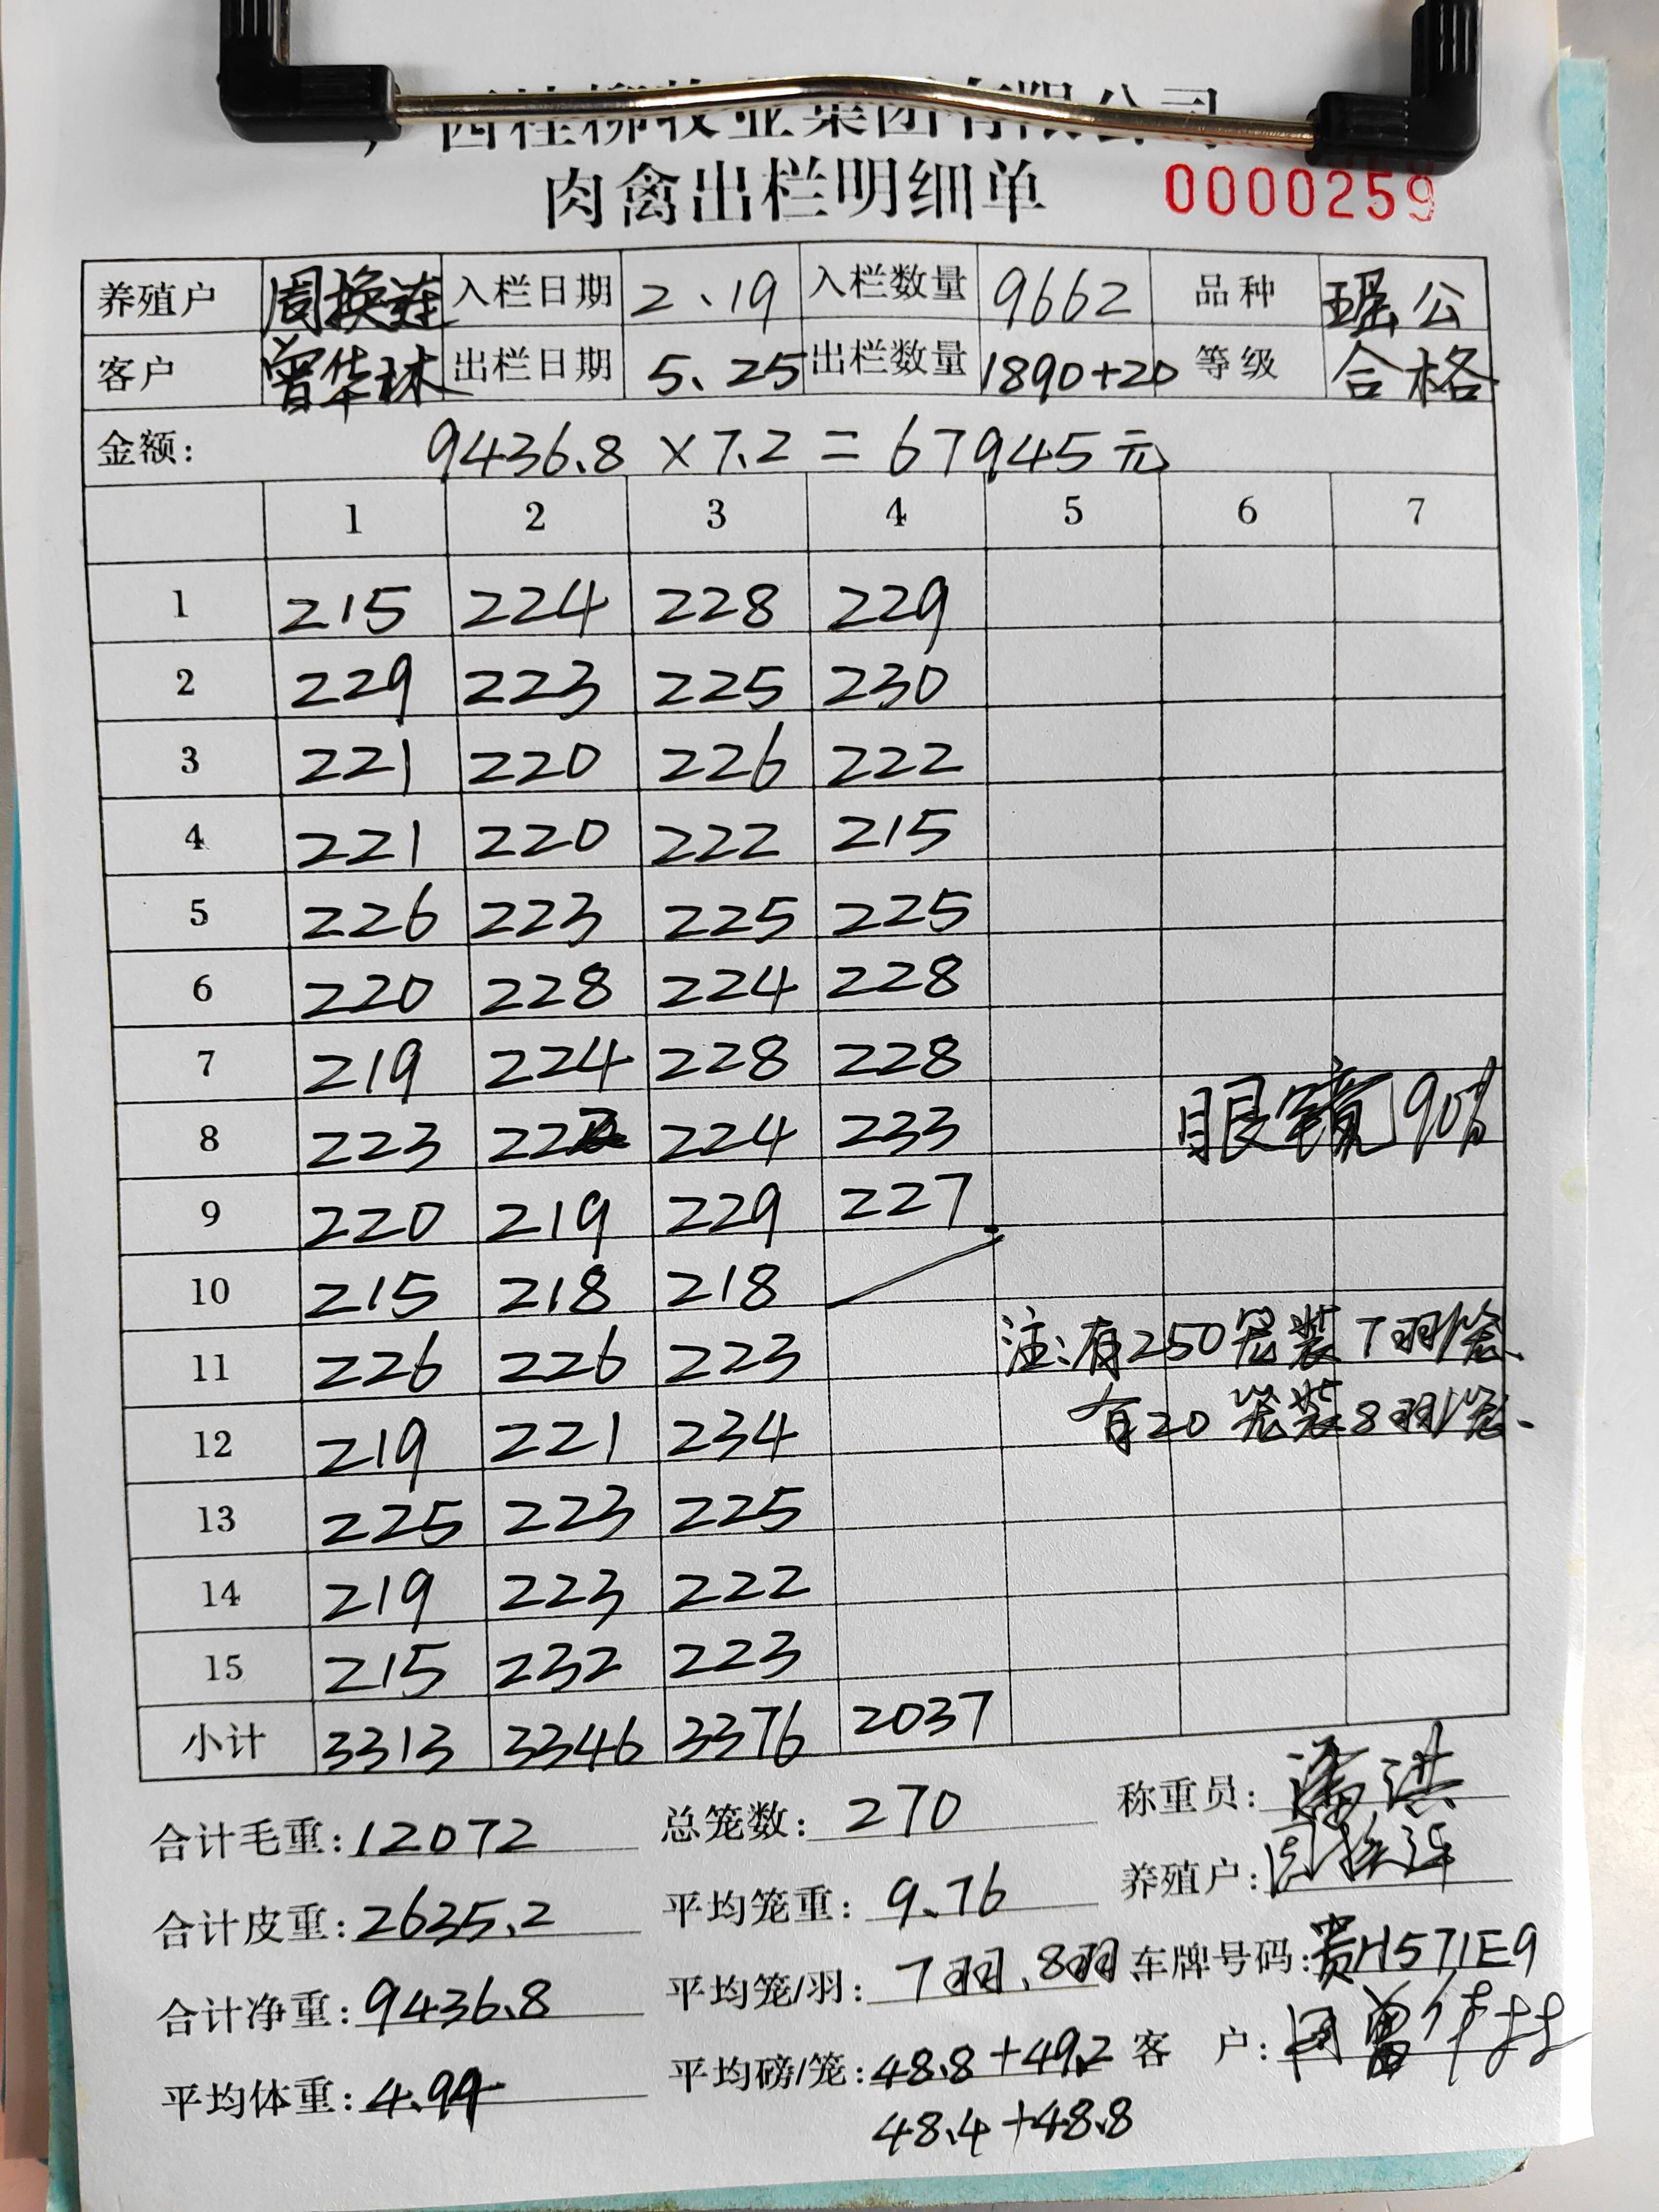 广西桂柳牧业集团有限公司
肉禽出栏明细单 0000259
养殖户 周换连 入栏日期 2、19 入栏数量 9662 品种 瑶公
客户 曾华林 出栏日期 5、25 出栏数量 1890+20 等级 合格
金额: 9436.8 × 7.2 = 67945元
1 2 3 4 5 6 7
1 215 224 228 229
2 229 223 225 230
3 221 220 226 222
4 221 220 222 215
5 226 223 225 225
6 220 228 224 228
7 219 224 228 228
8 223 222 224 233 眼镜90%
9 220 219 229 227
10 215 218 218
11 226 226 223 注:有250笼装7羽/笼、
12 219 221 234 有20笼装8羽/笼、
13 225 223 225
14 219 223 222
15 215 232 223
小计 3313 3346 3376 2037
合计毛重: 12072 总笼数: 270 称重员: 潘洪
合计皮重: 2635.2 平均笼重: 9.76 养殖户: 周换连
合计净重: 9436.8 平均笼/羽: 7羽、8羽 车牌号码: 贵H571E9
平均体重: 4.94 平均磅/笼: 48.8+49.2 客 户:
48.4+48.8